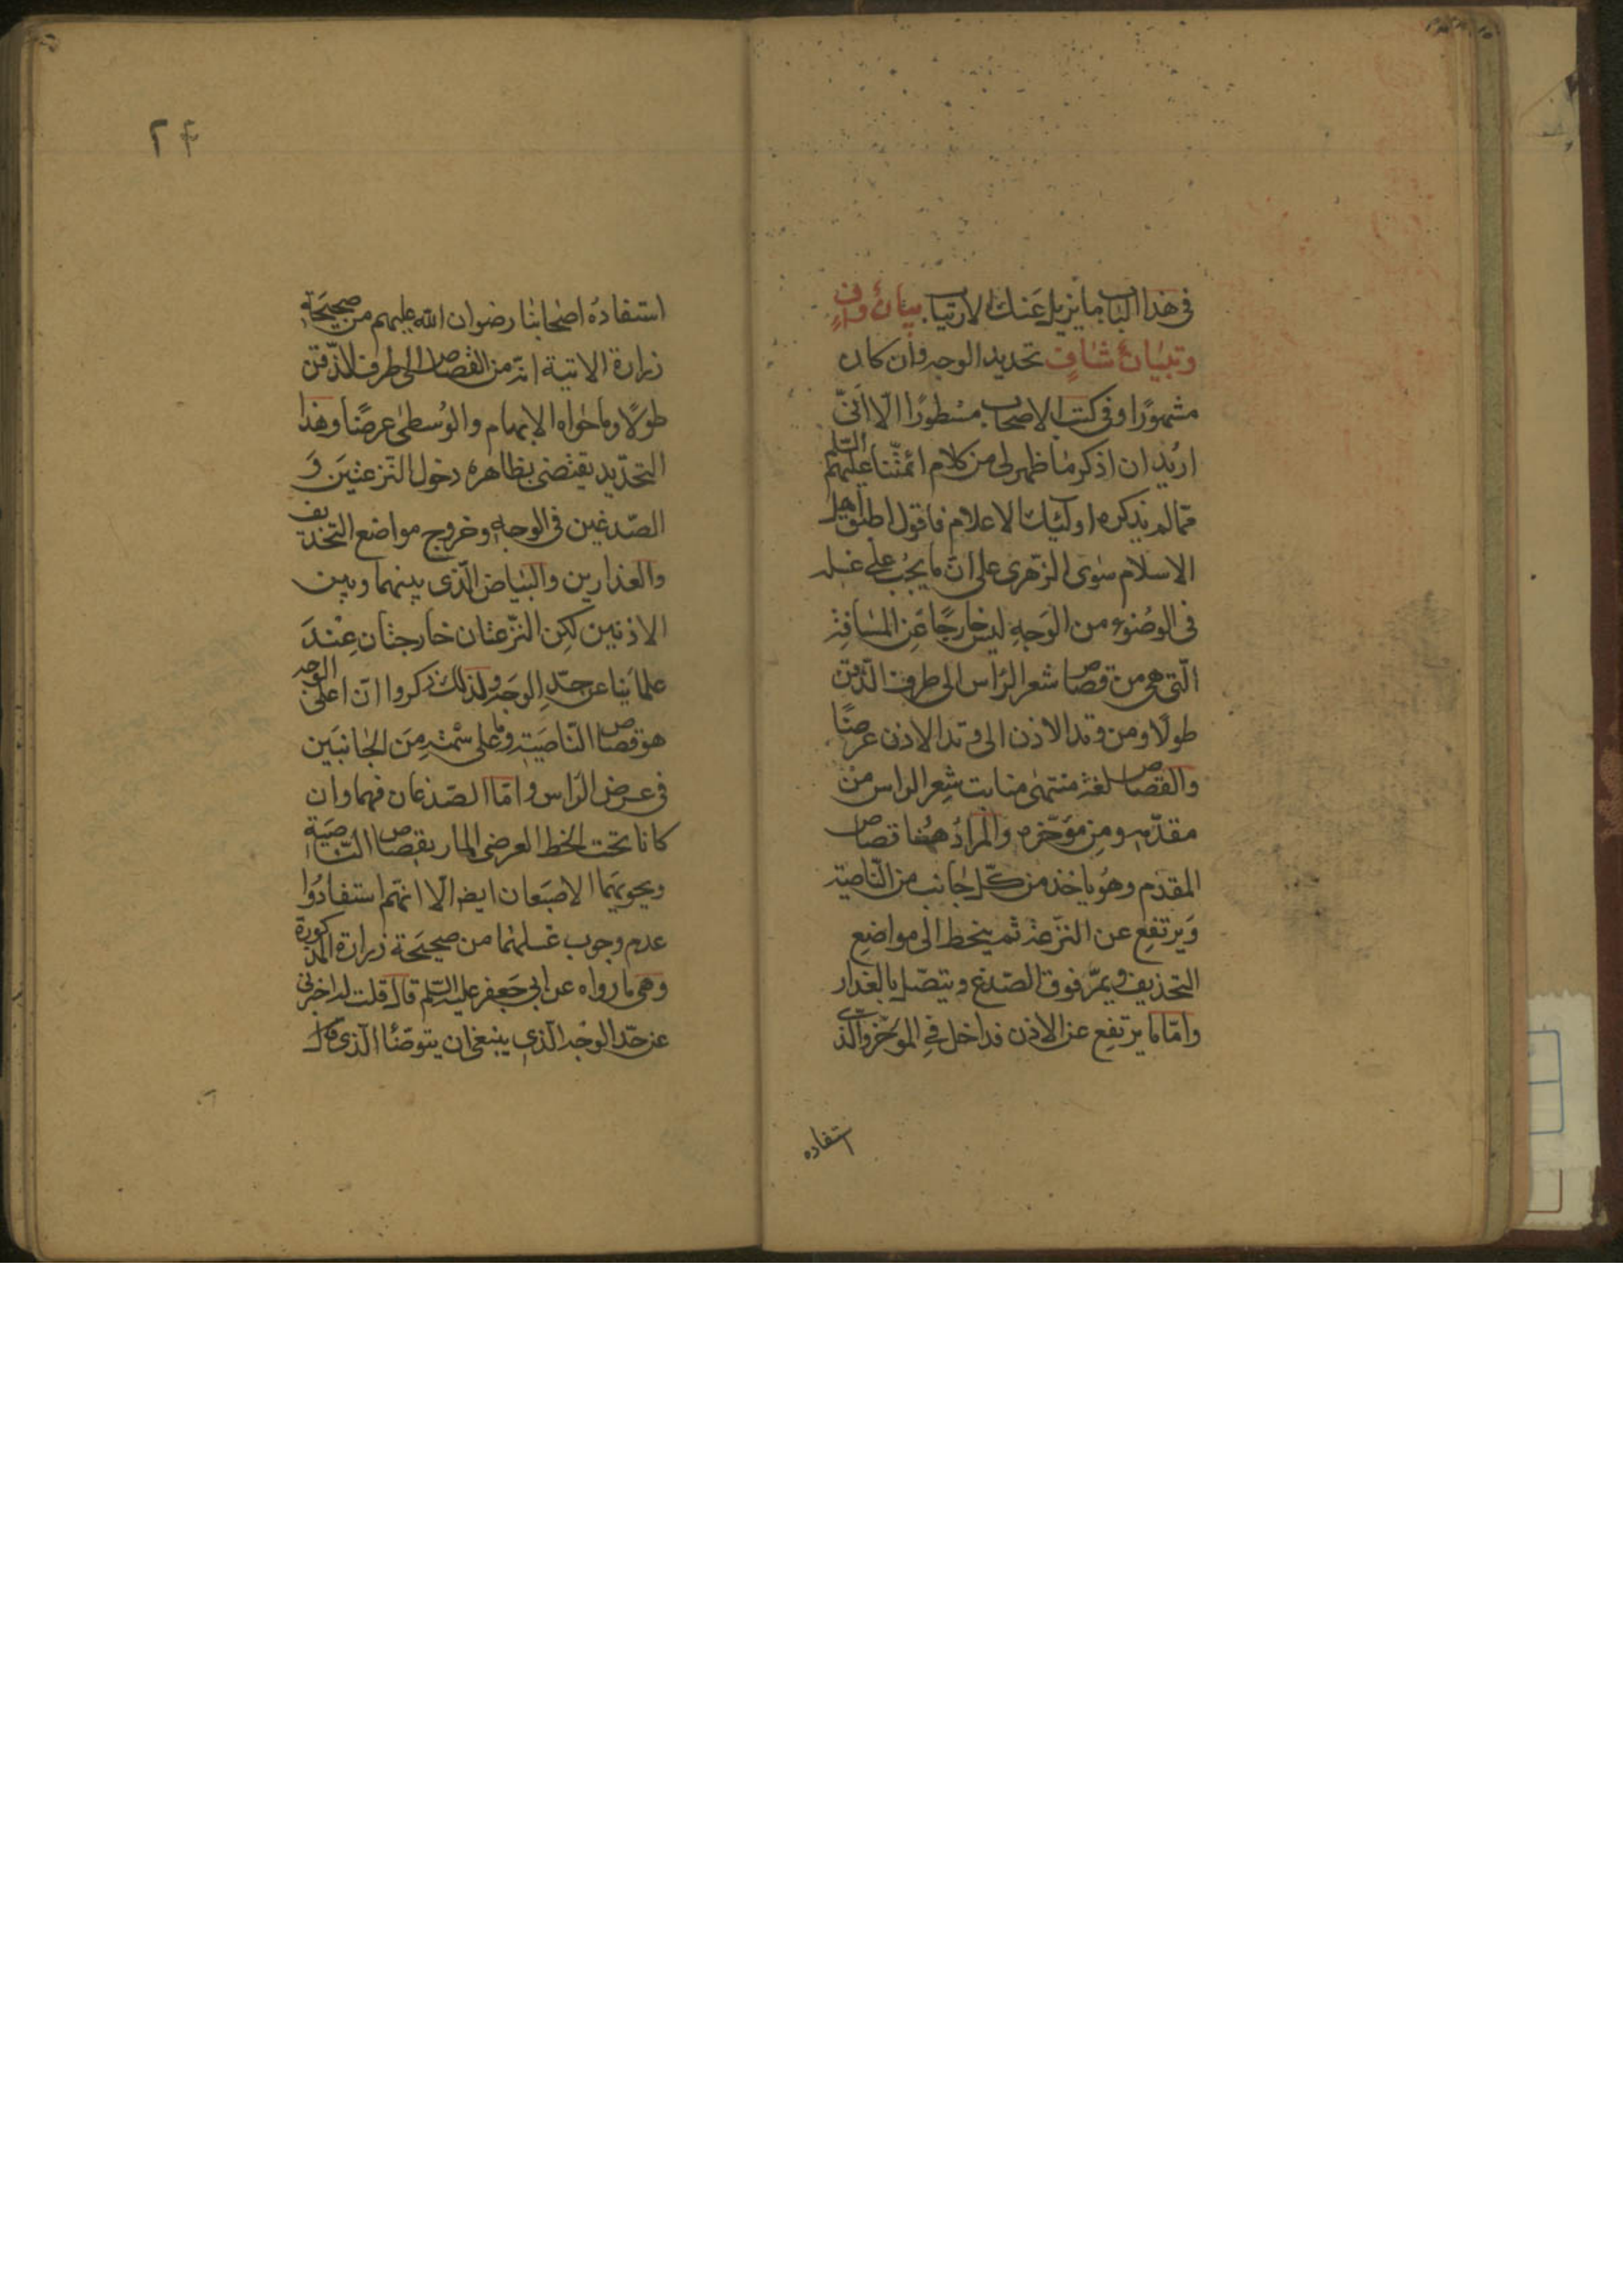 في هذا الباب ما يزيل عنك الارتياب بيان واف
وتبيان شاف تحديد الوجه وان كان
مشهورا وفي كتب الاصحاب مسطورا الا انى
اريد ان اذكر ما ظهر لى من كلام ائمتنا عليهم السلم
مما لم يذكره اولئك الاعلام فاقول اطبق اهل
الاسلام سوى الزهرى على ان ما يجب غسله
فى الوضوء من الوجه ليس خارجا عن المسافة
التى هى من قصاص شعر الراس الى طرف الذقن
طولا ومن وتد الاذن الى وتد الاذن عرضا
والقصاص لغة منتهى منابت شعر الراس من
مقدمه ومن مؤخره والمراد هنا قصاص
المقدم وهو ياخذ من كل جانب من الناصية
ويرتفع عن النزعة ثم ينحط الى مواضع
التحذيف ويمر فوق الصدغ ويتصل بالعذار
واما ما يرتفع عن الاذن فداخل في المؤخر والذى
استفاده
۲۴
استفاده اصحابنا رضوان الله عليهم من صحيحة
زرارة الاتية انه من القصاص الى طرف الذقن
طولا وما حواه الابهام والوسطى عرضا وهذا
التحديد يقتضى بظاهره دخول النزعتين و
الصدغين فى الوجه وخروج مواضع التحذيف
والعذارين والبياض الذى بينهما وبين
الاذنين لكن النزعتان خارجتان عند
علمائنا عن حد الوجه ولذلك ذكروا ان اعلى الوجه
هو قصاص الناصية وما على سمته من الجانبين
فى عرض الراس واما الصدغان فهما وان
كانا تحت الخط العرضى المار بقصاص الناصية
ويحويهما الاصبعان ايضا الا انهم استفادوا
عدم وجوب غسلهما من صحيحة زرارة المذكورة
وهى ما رواه عن ابى جعفر عليه السلم قال قلت له اخبرنى
عن حد الوجه الذى ينبغى ان يتوضئا الذى قال